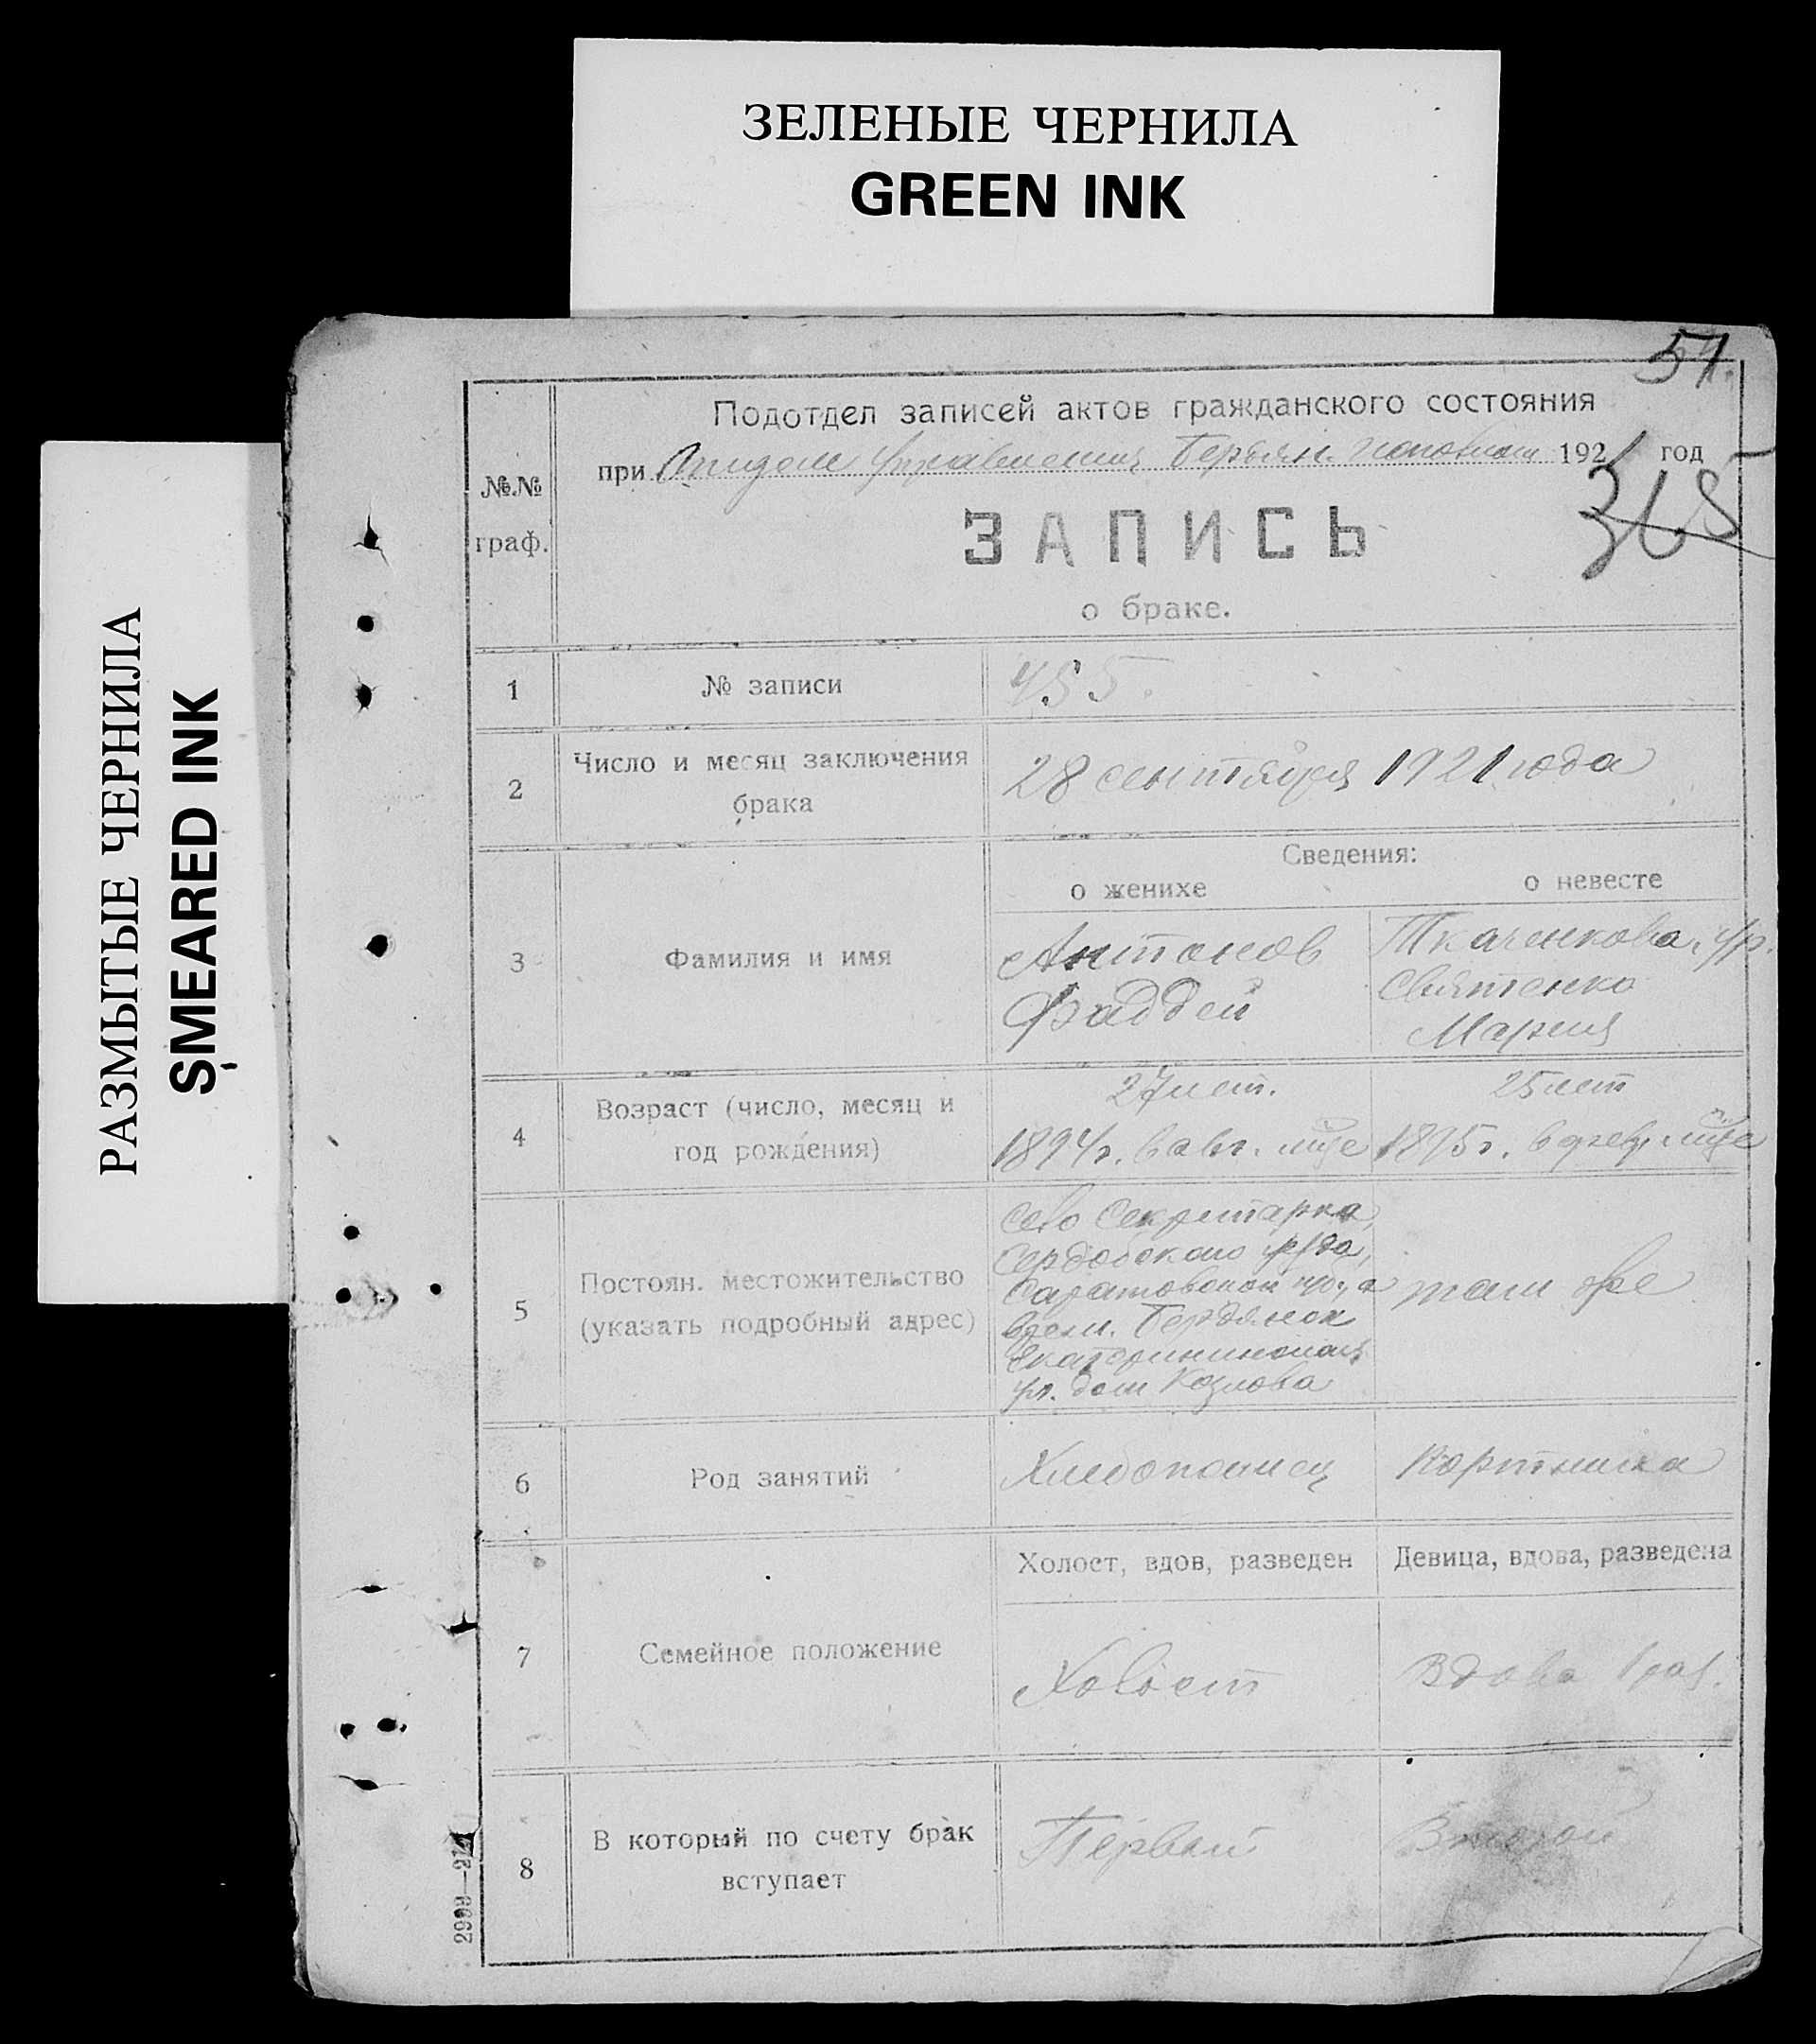 ЗЕЛЕНЫЕ ЧЕРНИЛА
GREEN INK
РАЗМЫТЫЕ ЧЕРНИЛА
SMEARED INK
51.
Подотдел записей актов гражданского состояния
при Отделе Управления Бердян. исполком 1921 год
365
№№
граф.
ЗАПИСЬ
о браке.
1 № записи 455.
2 Число и месяц заключения
брака
28 сентября 1921 года
Сведения:
о женихе о невесте
3 Фамилия и имя
Антонов
Фаддей
Ткаченкова, ур.
Святенко
Мария
4 Возраст (число, месяц и
год рождения)
27 лет.
1894 г. в авг. м-це
25 лет
1895 г. в февр. м-це
5 Постоян. местожительство
(указать подробный адрес)
село Секретарка,
Сердобского у-зда,
Саратовской губ., а
врем. Бердянск
Екатерининская
ул. дом Козлова
там же
6 Род занятий Хлебопашец Портниха
Холост, вдов, разведен Девица, вдова, разведена
7 Семейное положение Холост Вдова
8 В который по счету брак
вступает
Первый Второй